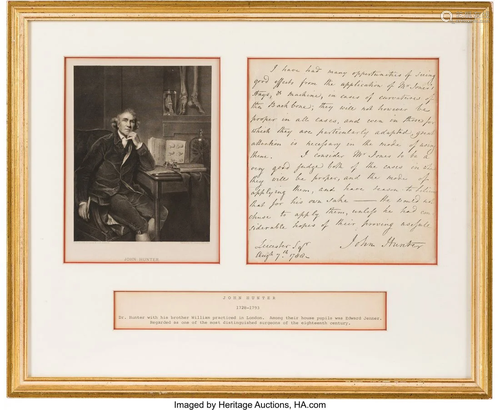 JOHN HUNTER
I have had many opportunities of seeing
good effects from the application of Mr Jones's
Stays, & machine, in cases of curvatures of
the Back bone; they will not however be
proper in all cases, and even in those for
which they are particularly adapted, great
attention is necessary in the mode of using
them. I consider Mr Jones to be a
very good judge both of the cases in which
they will be proper, and the mode of
applying them, and have reason to believe
that for his own sake — He would not
chuse to apply them, unless he had con
siderable hopes of their proving useful.
Leicester Sqr.
Augt 7th
John Hunter
JOHN HUNTER
1728-1793
Dr. Hunter with his brother William practiced in London. Among their house pupils was Edward Jenner.
Regarded as one of the most distinguished surgeons of the eighteenth century.
Imaged by Heritage Auctions, HA.com